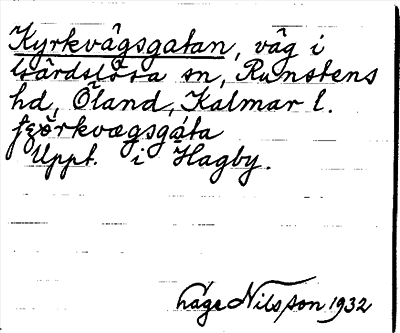 Kyrkvägsgatan, väg i
Gärdslösa sn, Runstens
hd, Öland, Kalmar l.
Uppt. i Hagby.
Hage Nilsson 1932